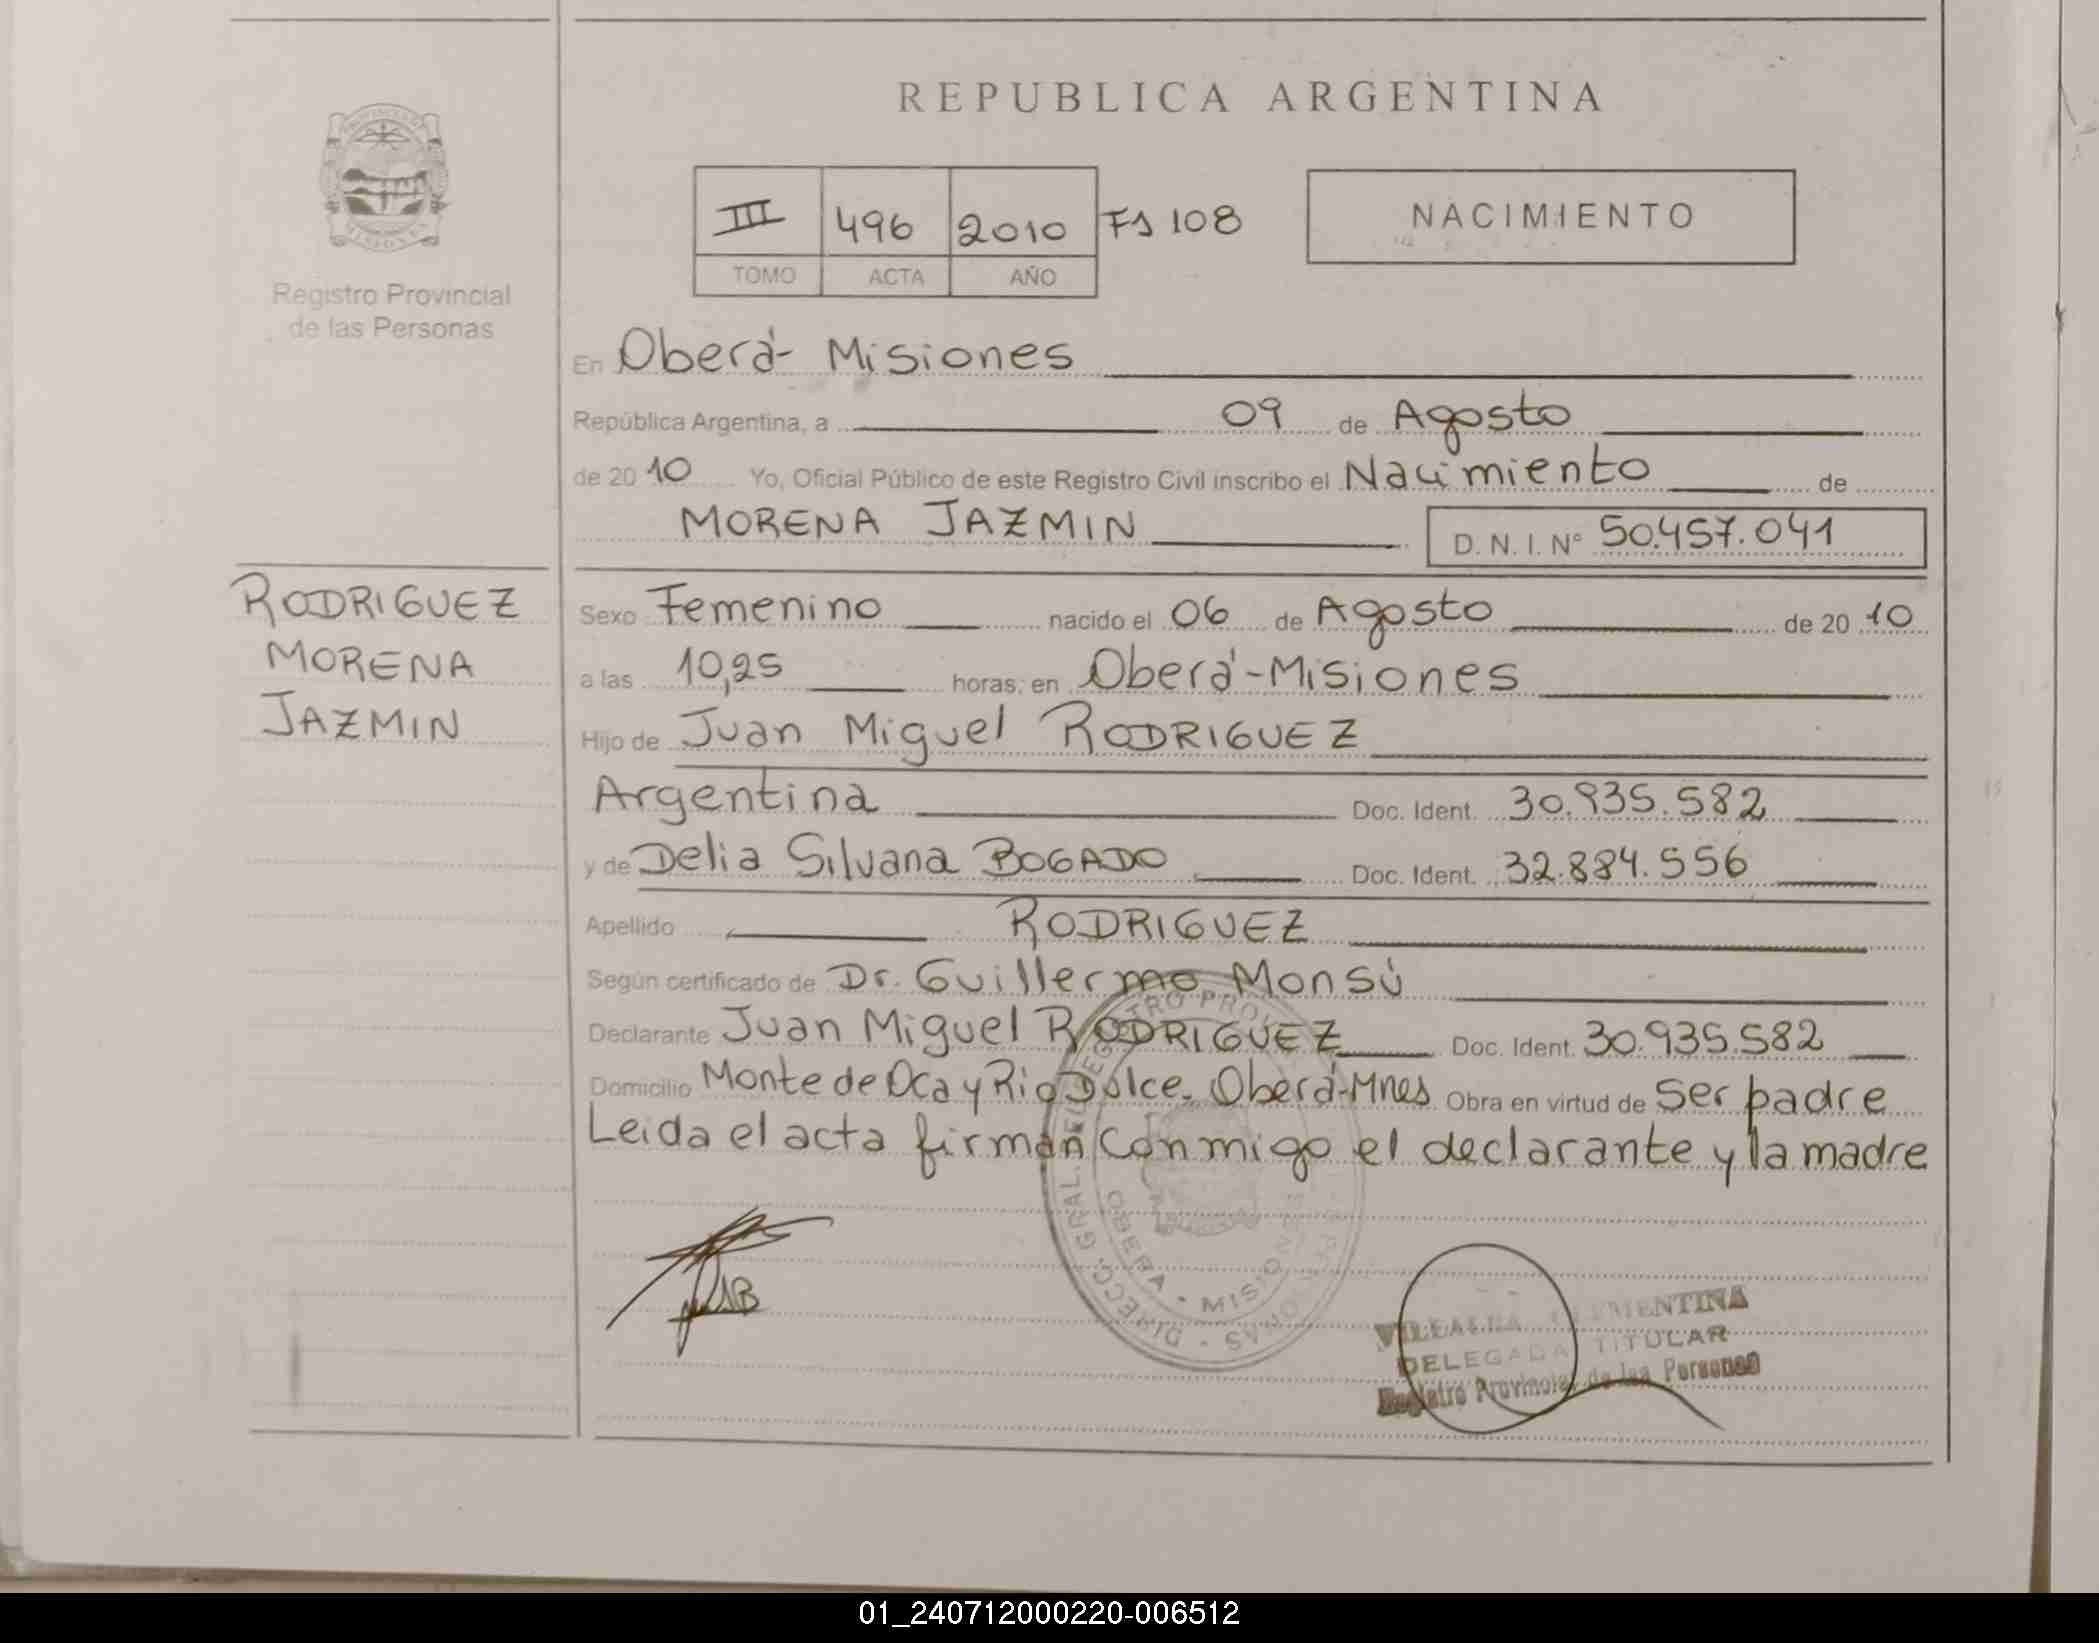 REPUBLICA ARGENTINA
III 496 2010 Fs 108
TOMO ACTA AÑO
NACIMIENTO
PROVINCIA DE
MISIONES
Registro Provincial
de las Personas
En Oberá- Misiones
República Argentina, a 09 de Agosto
de 20 10 Yo, Oficial Público de este Registro Civil inscribo el Nacimiento de
MORENA JAZMIN D. N. I. N° 50.457.041
RODRIGUEZ
MORENA
JAZMIN
Sexo Femenino nacido el 06 de Agosto de 20 10
a las 10,25 horas, en Oberá-Misiones
Hijo de Juan Miguel RODRIGUEZ
Argentina Doc. Ident. 30.935.582
y de Delia Silvana BOGADO Doc. Ident. 32.884.556
Apellido RODRIGUEZ
Según certificado de Dr. Guillermo Monsú
Declarante Juan Miguel RODRIGUEZ Doc. Ident. 30.935.582
Domicilio Monte de Oca y Rio Dulce. Oberá-Mnes Obra en virtud de Ser padre
Leida el acta firman conmigo el declarante y la madre
DIRECC. GRAL. DEL REGISTRO PROV. PERSONAS
OBERA - MISIONES
VILLALBA CLEMENTINA
DELEGADA TITULAR
Registro Provincial de las Personas
01_240712000220-006512